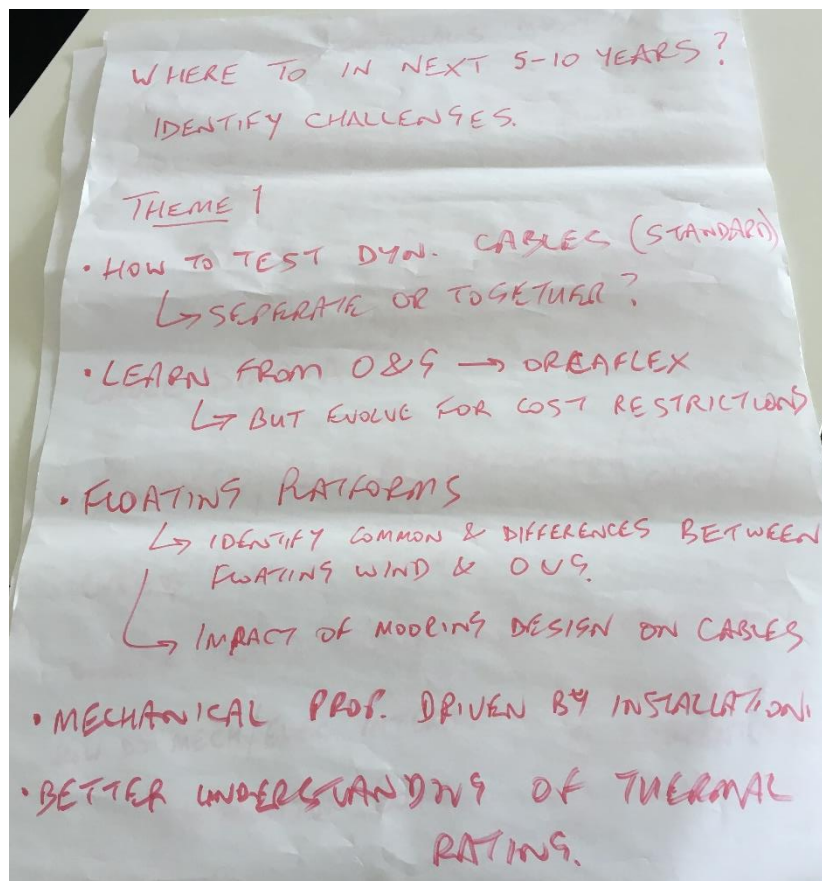 WHERE TO IN NEXT 5-10 YEARS?
IDENTIFY CHALLENGES.
THEME 1
• HOW TO TEST DYN. CABLES (STANDARD)
↳ SEPERATE OR TOGETHER?
• LEARN FROM O&G → ORCAFLEX
↳ BUT EVOLVE FOR COST RESTRICTIONS
• FLOATING PLATFORMS
↳ IDENTIFY COMMON & DIFFERENCES BETWEEN
FLOATING WIND & OVG.
↳ IMPACT OF MOORING DESIGN ON CABLES
• MECHANICAL PROP. DRIVEN BY INSTALLATION.
• BETTER UNDERSTANDING OF THERMAL
RATING.